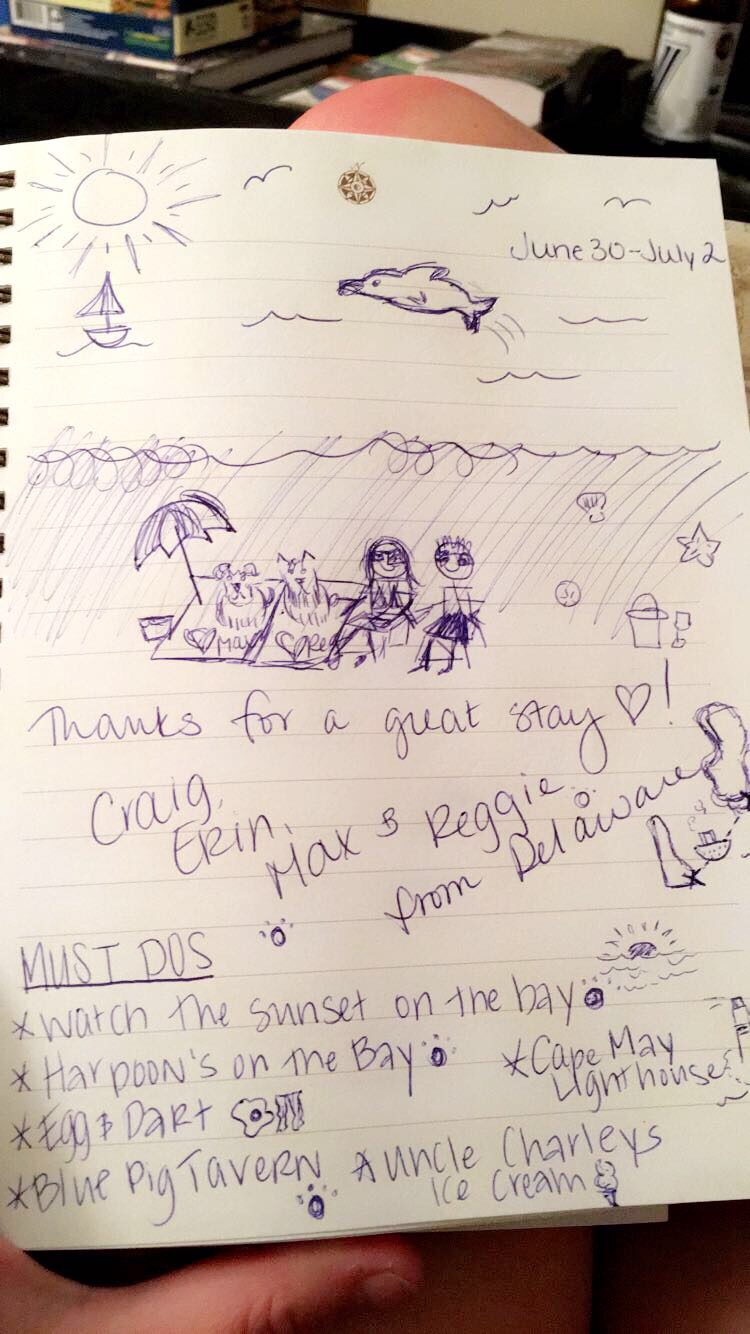 June 30-July 2
Max Reg
Thanks for a great stay ♡!
Craig,
Erin,
Max & Reggie
from Delaware
MUST DOS
*Watch the sunset on the bay
*Harpoon's on the Bay
*Cape May
Lighthouse
*Egg & Dart
*Blue Pig Tavern
*Uncle Charleys
Ice Cream